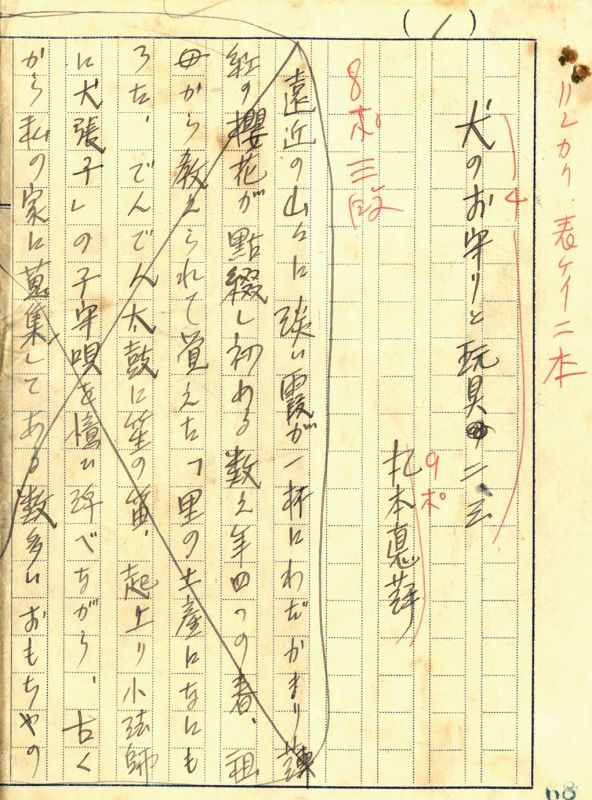 (1)
11レカク、表ケイ二本
4
犬のお守りと玩具 二三
9ポ
札本恵葑
8ポ三段
遠近の山々に淡い霞が一杯にわだかまり薄
紅の櫻花が點綴し初める数え年四つの春、祖
母から教えられて覚えた「里の土産になにも
ろた、でんでん太鼓に笙の笛、起上り小法師
に犬張子」の子守唄を憶い浮べながら、古く
から私の家に蒐集してある数多いおもちゃの